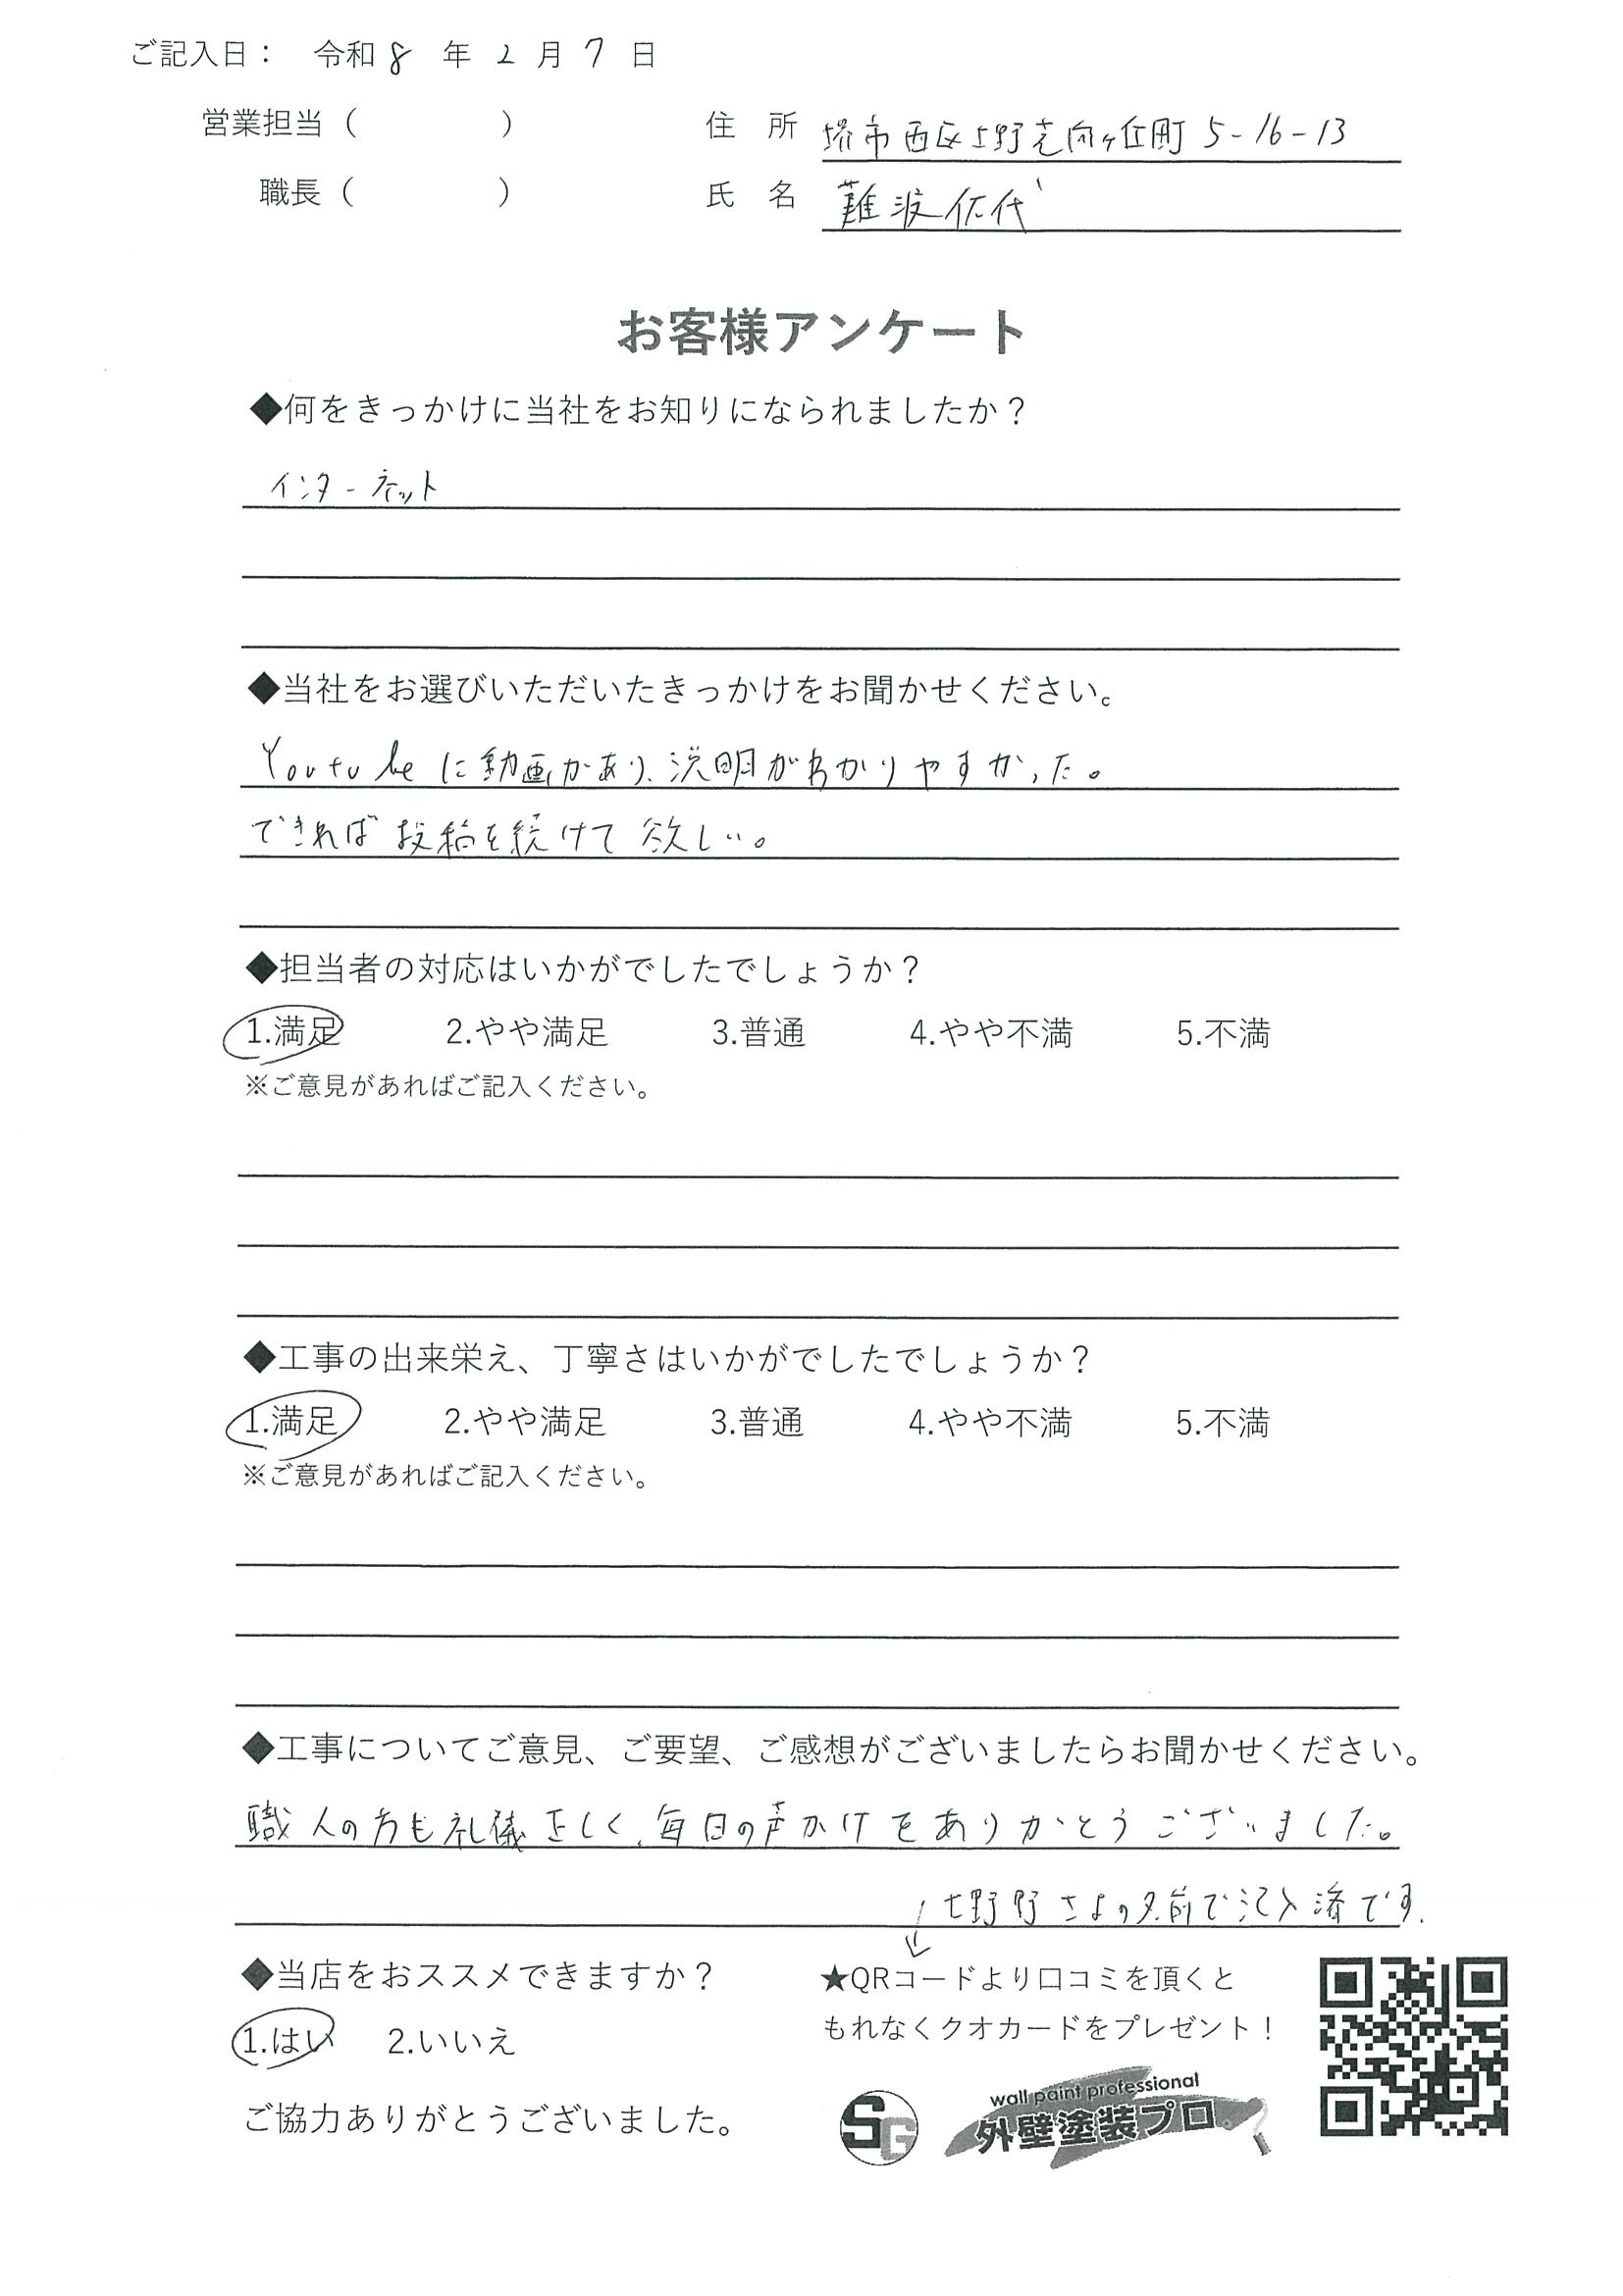 ご記入日： 令和 8 年 2 月 7 日
営業担当（ ） 住 所 堺市西区上野芝向ヶ丘町 5-16-13
職長（ ） 氏 名 難波佐代
お客様アンケート
◆何をきっかけに当社をお知りになられましたか？
インターネット
◆当社をお選びいただいたきっかけをお聞かせください。
Youtubeに動画があり、説明がわかりやすかった。
できれば投稿を続けて欲しい。
◆担当者の対応はいかがでしたでしょうか？
1.満足 2.やや満足 3.普通 4.やや不満 5.不満
※ご意見があればご記入ください。
◆工事の出来栄え、丁寧さはいかがでしたでしょうか？
1.満足 2.やや満足 3.普通 4.やや不満 5.不満
※ご意見があればご記入ください。
◆工事についてご意見、ご要望、ご感想がございましたらお聞かせください。
職人の方も礼儀正しく、毎日の声かけをありがとうございました。
の名前で記入済です.
◆当店をおススメできますか？
1.はい 2.いいえ
★QRコードより口コミを頂くと
もれなくクオカードをプレゼント！
ご協力ありがとうございました。
SG
wall paint professional
外壁塗装プロ